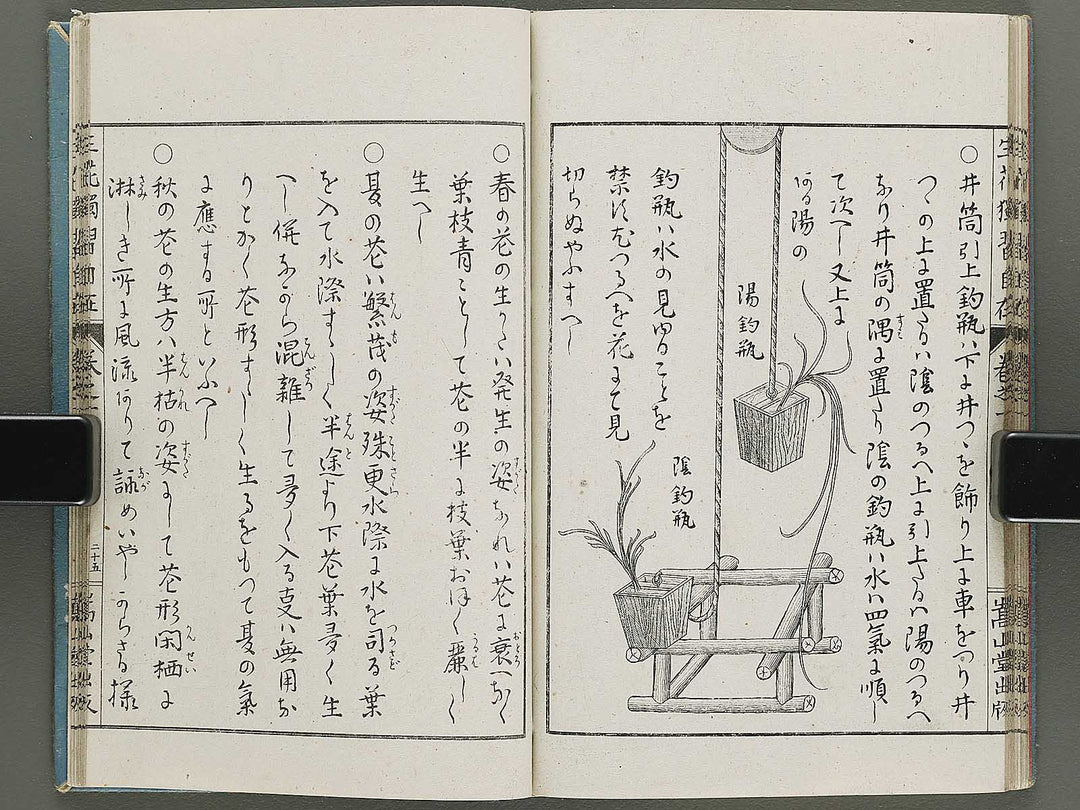 ○井筒引上釣瓶ハ下ニ井つゝを飾り上ニ車をつり井
つゝの上ニ置たるハ陰のつるへ上ニ引上たるハ陽のつるへ
なり井筒の隅ニ置たり陰の釣瓶ハ水ハ四氣ニ順し
て次へし又上に
ある陽の
釣瓶ハ水の見ゆることを
禁ず尤つるへを花にて見
切らぬやふすへし
陽釣瓶
陰釣瓶
○春の花の生かたハ発生の姿なれハ花に衰へなく
葉枝青ことして花の半に枝葉おほく麗しく
生へし
○夏の花ハ繁茂の姿殊更水際に水を司る葉
を入て水際すゝしく半途より下花葉多く生
へし併なから混雑して多く入る支ハ無用な
りとかく花形すゝしく生るをもつて夏の氣
に應する所といふへし
○秋の花の生方ハ半枯の姿にして花形閑栖に
淋しき所に風流ありて詠めいやしからさる様
生花獨習自在
卷之一
二十五
嵩山堂出版